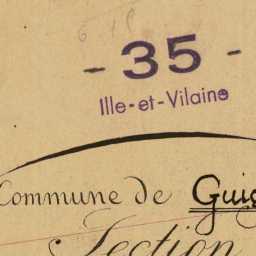 - 35 -
Ille-et-Vilaine
Commune de Guig
Section